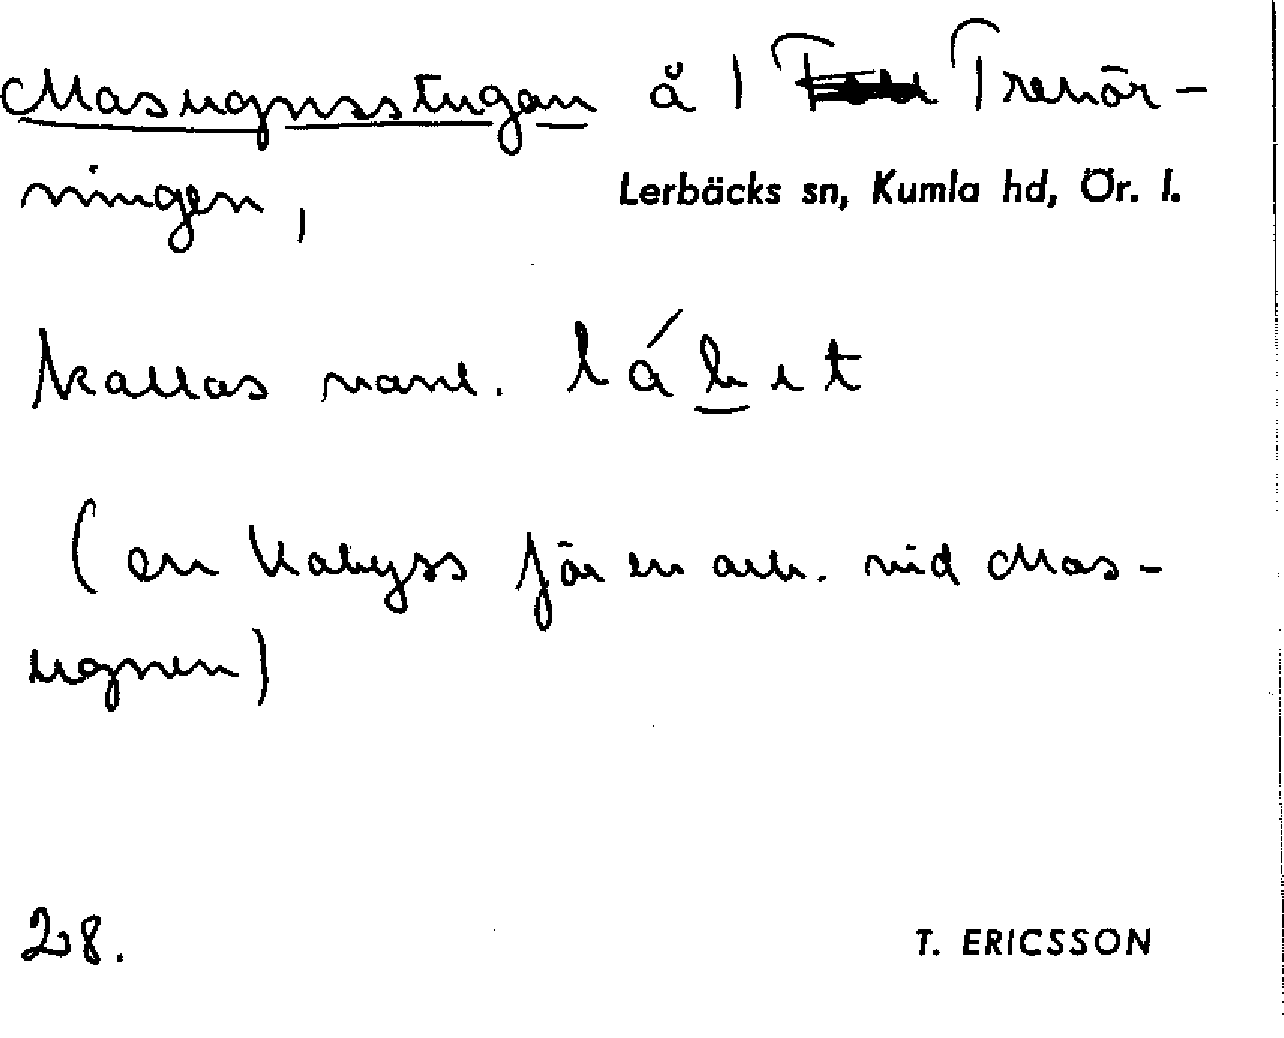 Masugnsstugan å 1 Trehör-
ningen,
Lerbäcks sn, Kumla hd, Ör. l.
kallas vanl.
(en kabyss för en arb. vid Mas-
ugnen)
28.
T. ERICSSON